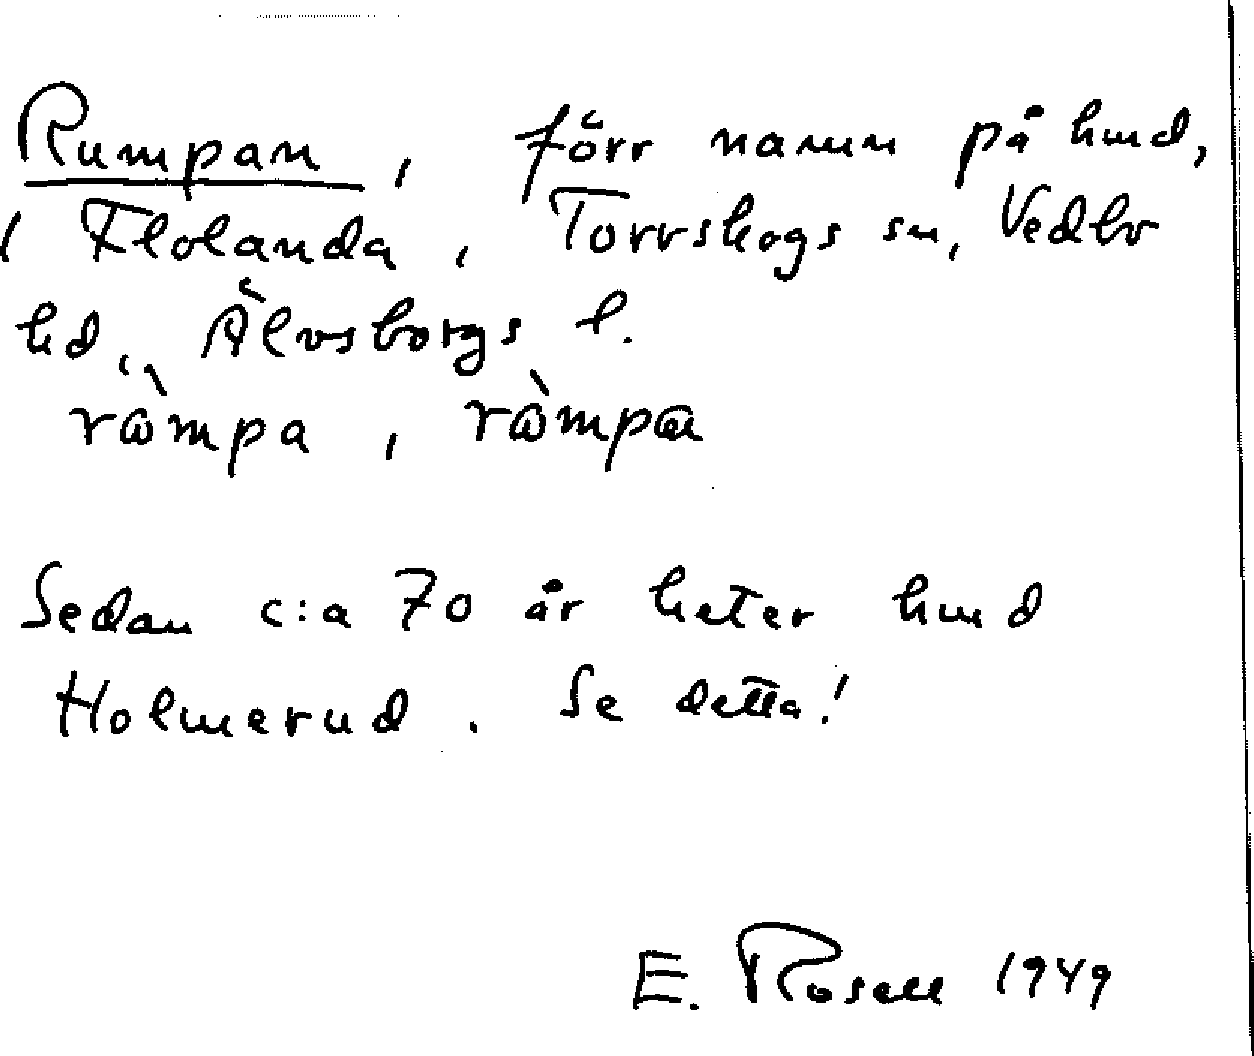 Rumpan, förr namn på hmd,
i Flolanda, Torrskogs sn, Vedbo
hd., Älvsborgs l.
ròmpa, ròmpa
Sedan c:a 70 år heter hmd
Holmerud. Se detta!
E. Rosell 1949